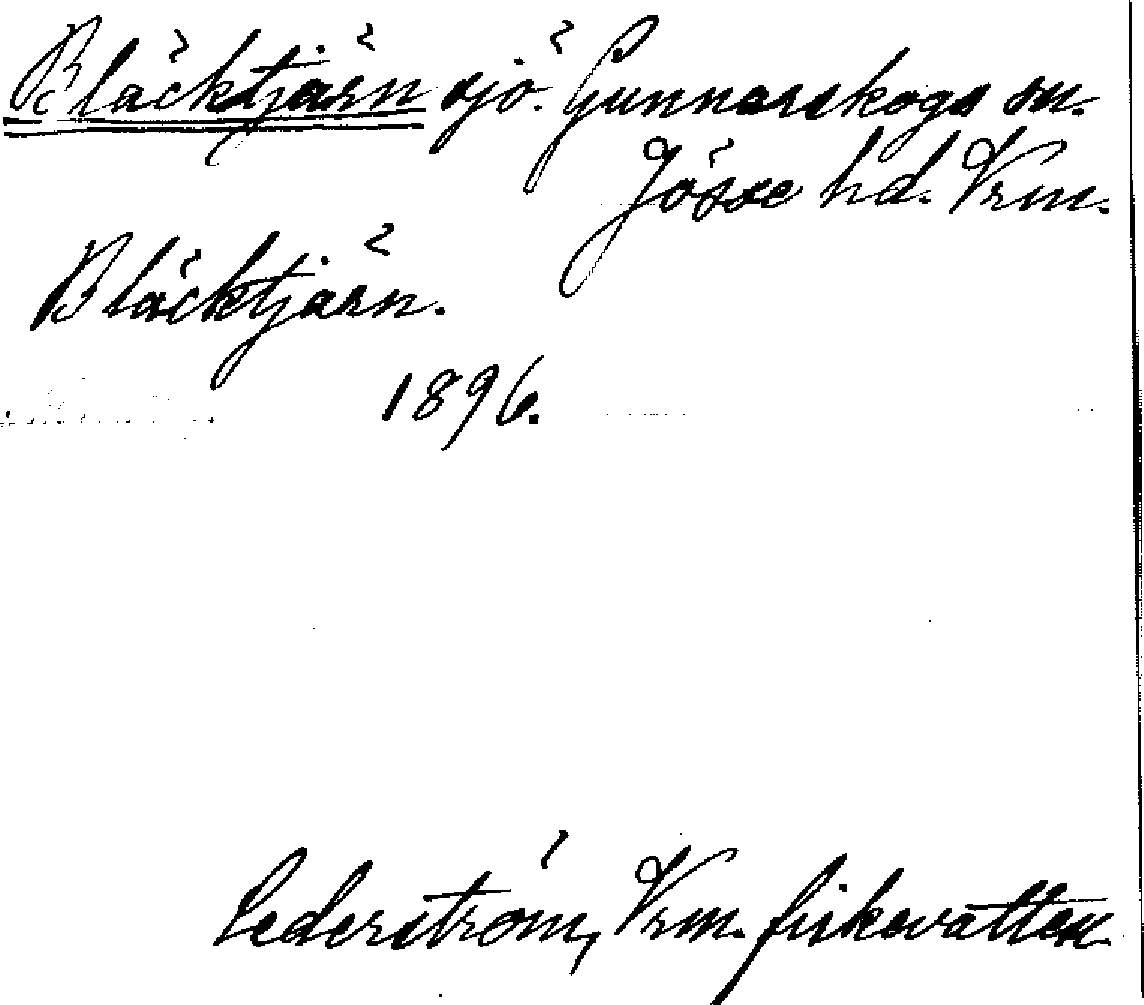 Bläcktjärn sjö. Gunnarskogs sn.
Jösse hd. Vrm.
Bläcktjärn.
1896.
Cederström, Vrm. fiskevatten